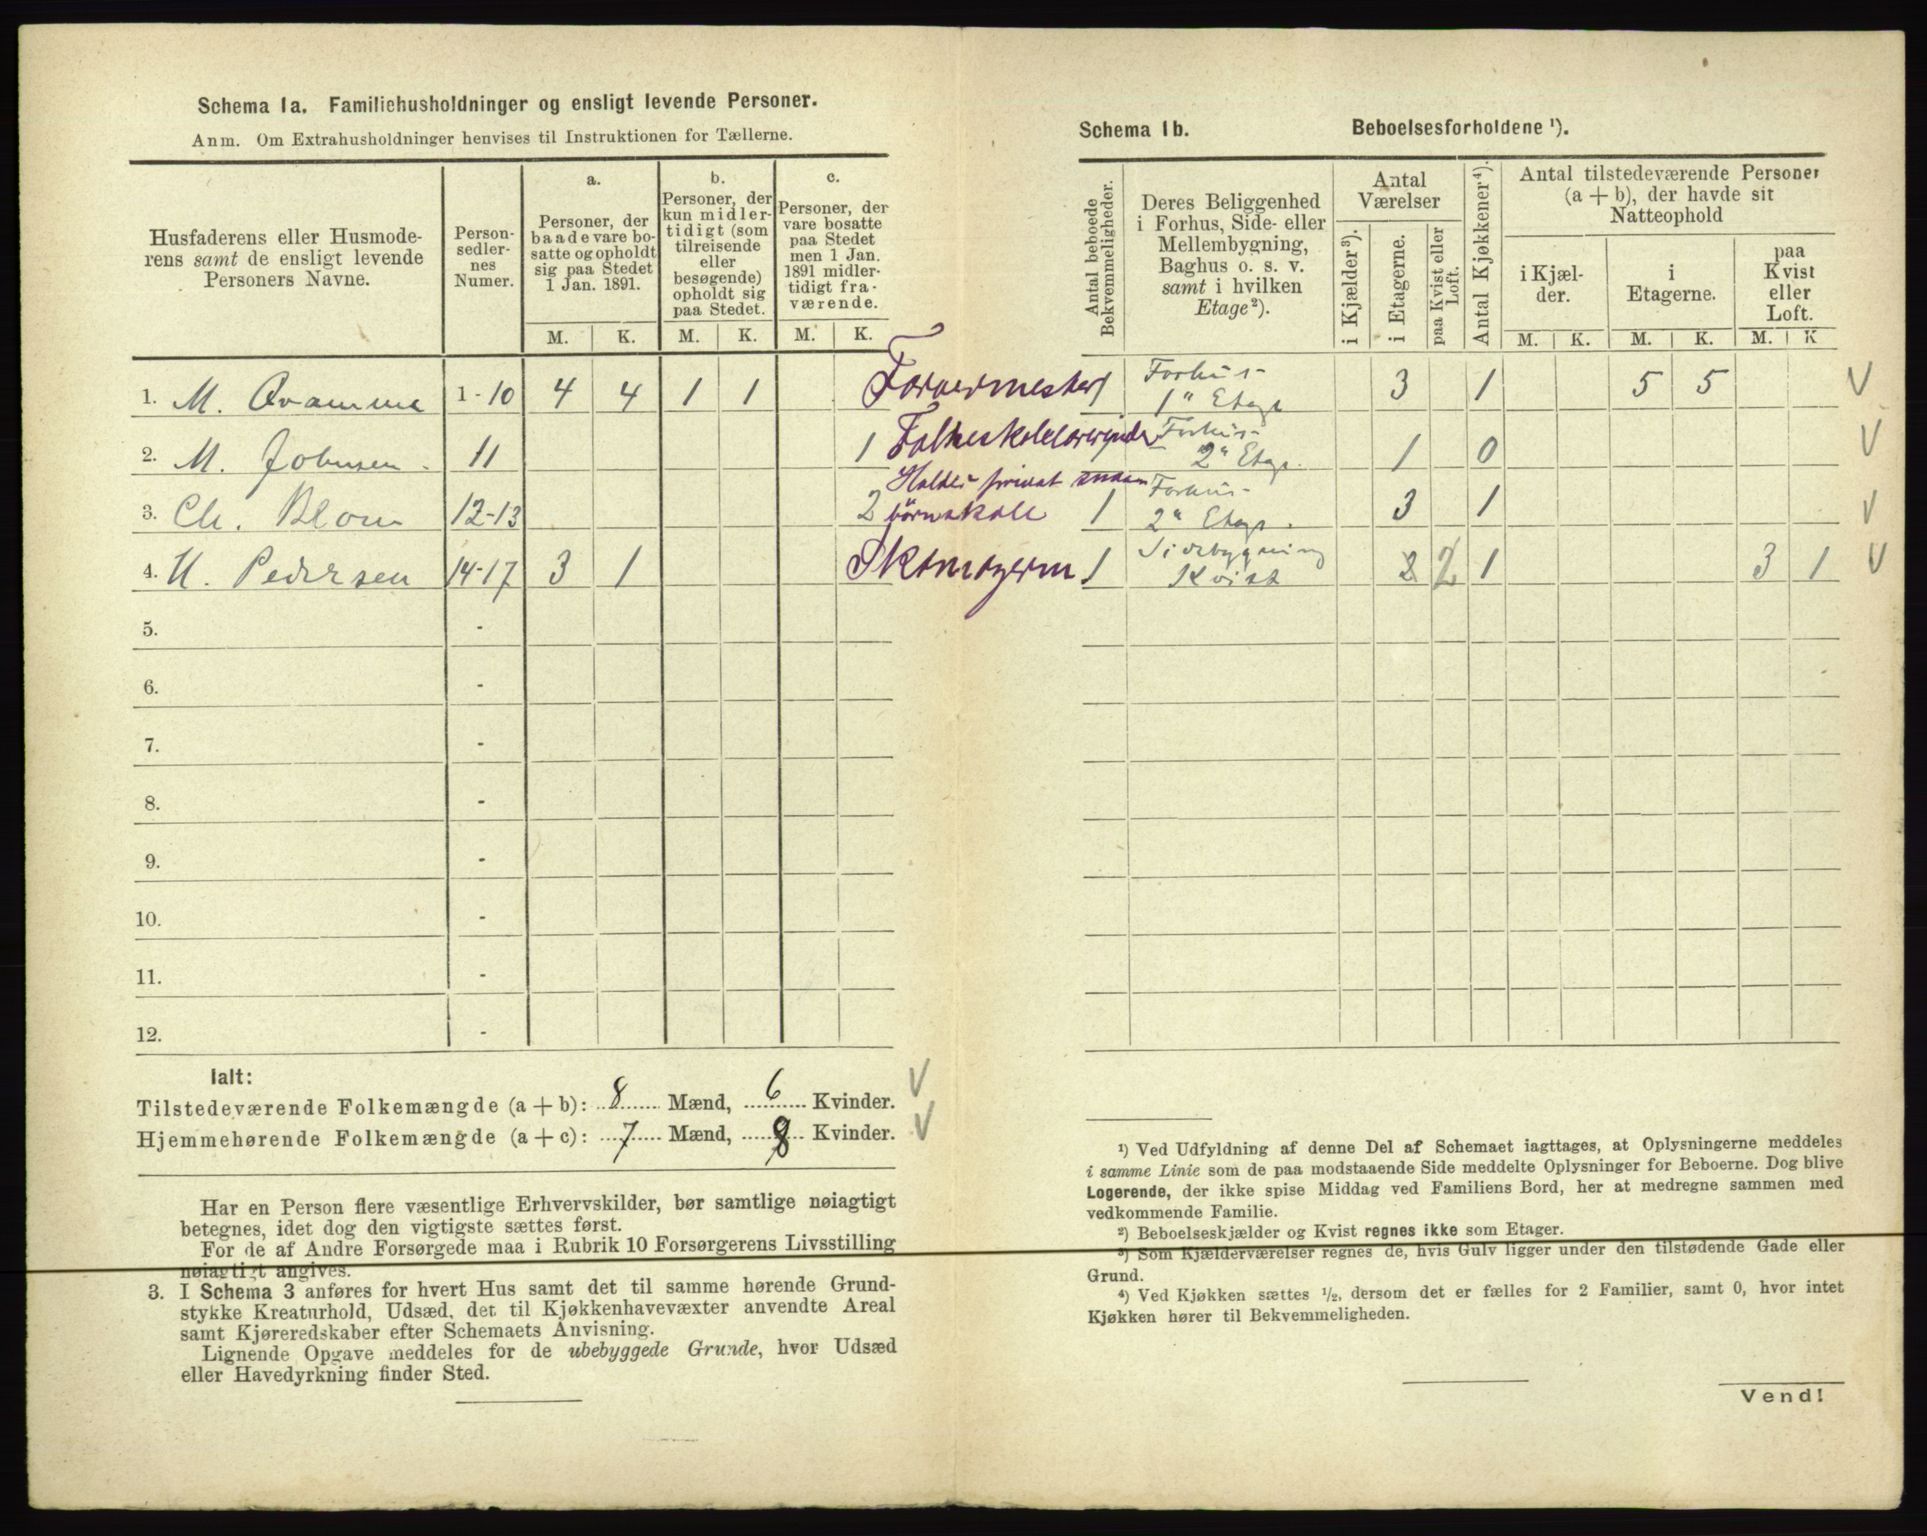 Schema 1a. Familiehusholdninger og ensligt levende Personer.
Anm. Om Extrahusholdninger henvises til Instruktionen for Tællerne.
Husfaderens eller Husmode-
rens samt de ensligt levende
Personers Navne.
Person-
sedler-
nes
Numer.
a.
Personer, der
baade vare bo-
satte og opholdt
sig paa Stedet
1 Jan. 1891.
b.
Personer, der
kun midler-
tidigt (som
tilreisende
eller
besøgende)
opholdt sig
paa Stedet.
c.
Personer, der
vare bosatte
paa Stedet
men 1 Jan.
1891 midler-
tidigt fra-
værende.
M. K. M. K. M. K.
1. M. Qvamme 1-10 4 4 1 1 Farvermester
2. M. Johnsen 11 1 Folkeskolelærerinde
Holder privat
3. Ch. Blom 12-13 2 børneskole
4. U. Pedersen 14-17 3 1 Skomagerm
5. -
6. -
7. -
8. -
9. -
10. -
11. -
12. -
Ialt:
Tilstedeværende Folkemængde (a + b): 8 Mænd, 6 Kvinder. V
Hjemmehørende Folkemængde (a + c): 7 Mænd, 8 Kvinder. V
Har en Person flere væsentlige Erhvervskilder, bør samtlige nøiagtigt
betegnes, idet dog den vigtigste sættes først.
For de af Andre Forsørgede maa i Rubrik 10 Forsørgerens Livsstilling
nøiagtigt angives.
3. I Schema 3 anføres for hvert Hus samt det til samme hørende Grund-
stykke Kreaturhold, Udsæd, det til Kjøkkenhavevæxter anvendte Areal
samt Kjøreredskaber efter Schemaets Anvisning.
Lignende Opgave meddeles for de ubebyggede Grunde, hvor Udsæd
eller Havedyrkning finder Sted.
Schema 1b. Beboelsesforholdene ¹).
Antal beboede
Bekvemmeligheder.
Deres Beliggenhed
i Forhus, Side- eller
Mellembygning,
Baghus o. s. v.
samt i hvilken
Etage²).
Antal
Værelser
i Kjælder³).
i Etagerne.
paa Kvist eller
Loft.
Antal Kjøkkener⁴).
Antal tilstedeværende Personer
(a + b), der havde sit
Natteophold
i Kjæl-
der.
i
Etagerne.
paa
Kvist
eller
Loft.
M. K. M. K. M. K
1 Forhus-
1" Etage 3 1 5 5 V
Forhus-
2" Etage. 1 0 V
1 Forhus-
2" Etage. 3 1 V
1 Sidebygning
Kvist 2 2 1 3 1 V
¹) Ved Udfyldning af denne Del af Schemaet iagttages, at Oplysningerne meddeles
i samme Linie som de paa modstaaende Side meddelte Oplysninger for Beboerne. Dog blive
Logerende, der ikke spise Middag ved Familiens Bord, her at medregne sammen med
vedkommende Familie.
²) Beboelseskjælder og Kvist regnes ikke som Etager.
³) Som Kjælderværelser regnes de, hvis Gulv ligger under den tilstødende Gade eller
Grund.
⁴) Ved Kjøkken sættes ½, dersom det er fælles for 2 Familier, samt 0, hvor intet
Kjøkken hører til Bekvemmeligheden.
Vend!